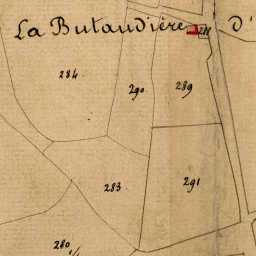 La Butaudière D'
284
290
289
283
291
280